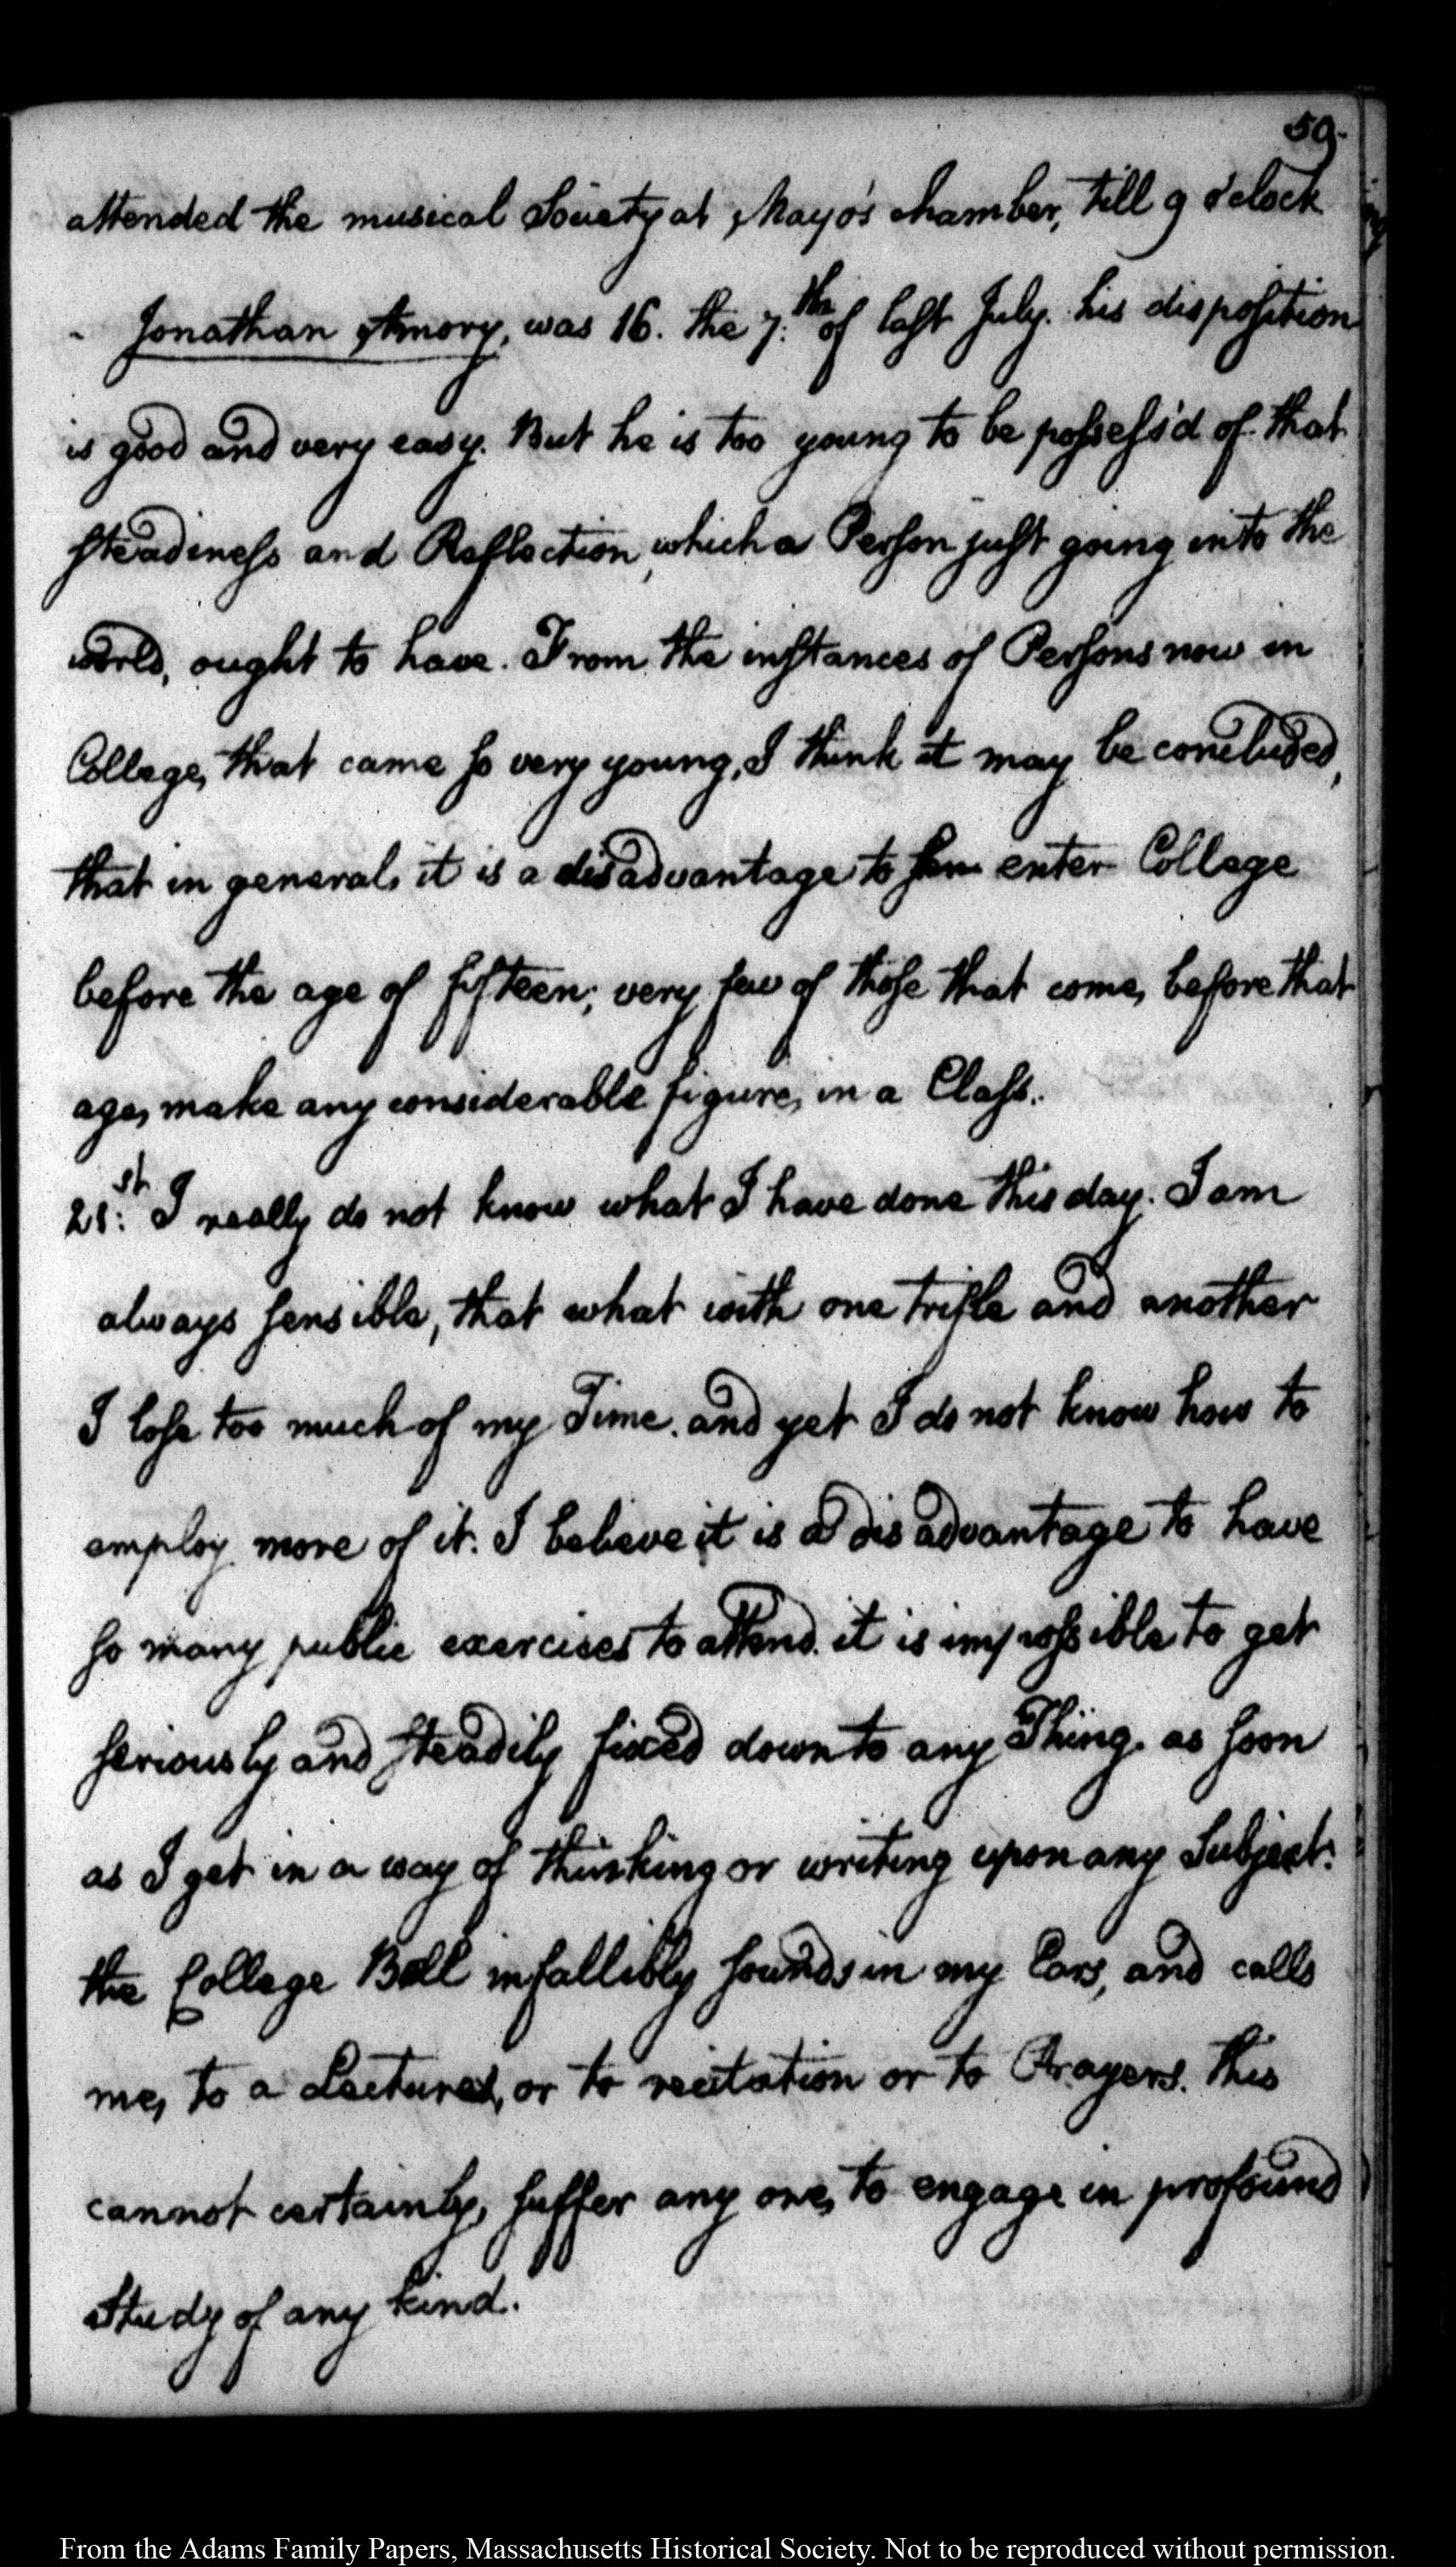 59.
attended the musical Society at Mayo's chamber, till 9 o'clock
- Jonathan Amory, was 16. the 7:th of last July. his disposition
is good and very easy. But he is too young to be possess'd of that
steadiness and Reflection, which a Person just going into the
world, ought to have. From the instances of Persons now in
College, that came so very young, I think it may be concluded,
that in general, it is a disadvantage to enter College
before the age of fifteen; very few of those that come, before that
age, make any considerable figure, in a Class.
21:st I really do not know what I have done this day. I am
always sensible, that what with one trifle and another
I lose too much of my Time. and yet I do not know how to
employ more of it. I believe it is a disadvantage to have
so many public exercises to attend. it is impossible to get
seriously and steadily fixed down to any Thing. as soon
as I get in a way of thinking or writing upon any Subject.
the College Bell infallibly sounds in my Ears, and calls
me, to a Lecture, or to recitation or to Prayers. This
cannot certainly, suffer any one, to engage in profound
Study of any kind.
From the Adams Family Papers, Massachusetts Historical Society. Not to be reproduced without permission.